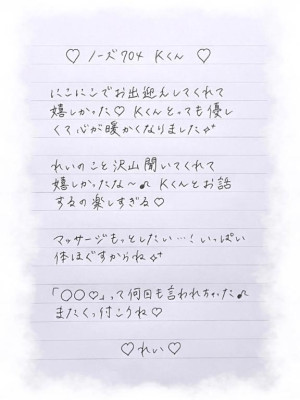 ♡ ノーズ704 Kくん ♡
にこにこでお出迎えしてくれて
嬉しかった♡ Kくんとっても優し
くて心が暖かくなりました✨
れいのこと沢山聞いてくれて
嬉しかったな～♪ Kくんとお話
するの楽しすぎる♡
マッサージもっとしたい…!いっぱい
体ほぐすからね✨
「〇〇♡」って何回も言われちゃった♪
またくっ付こうね♡
♡れい♡